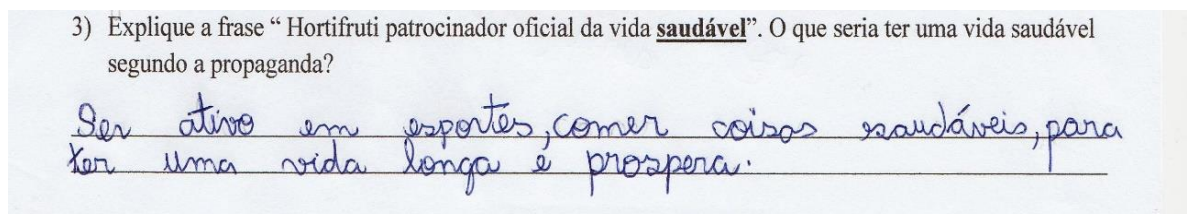 3) Explique a frase “ Hortifruti patrocinador oficial da vida saudável”. O que seria ter uma vida saudável
segundo a propaganda?
Ser ativo em esportes, comer coisas saudáveis, para
ter uma vida longa e prospera.